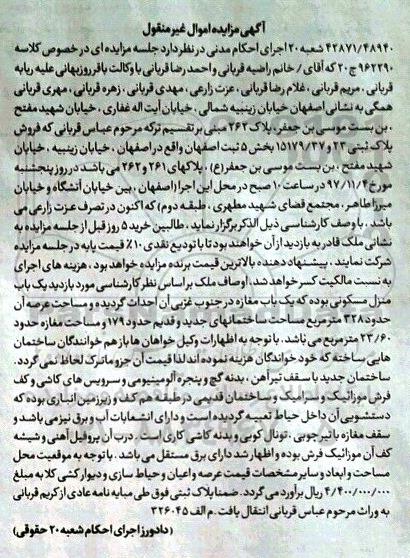 آگهی مزایده اموال غیر منقول
۴۲۸۷۱/۴۸۹۴۰ شعبه ۲۰ اجرای احکام مدنی در نظر دارد جلسه مزایده ای در خصوص کلاسه
۹۶۲۲۹۰ ج ۲۰ که آقای / خانم راضیه قربانی و احمدرضا قربانی با وکالت باقر روزبهانی علیه ربابه
قربانی ، مریم قربانی ، غلام رضا قربانی ، عزت زارعی ، مهدی قربانی ، زهره قربانی ، مهری قربانی
همگی به نشانی اصفهان خیابان زینبیه شمالی ، خیابان آیت اله غفاری ، خیابان شهید مفتح
، بن بست موسی بن جعفر ، پلاک ۲۶۲ مبنی بر تقسیم ترکه مرحوم عباس قربانی که فروش
پلاک ثبتی ۲۳ و ۱۵۱۷۹/۳۷ بخش ۵ ثبت اصفهان واقع در اصفهان ، خیابان زینبیه ، خیابان
شهید مفتح ، بن بست موسی بن جعفر (ع) ، پلاکهای ۲۶۱ و ۲۶۲ می باشد در روز پنجشنبه
مورخ ۹۷/۱۱/۴ در ساعت ۱۰ صبح در محل این اجرا (اصفهان ، بین خیابان آتشگاه و خیابان
میرزا طاهر ، مجتمع قضای شهید مطهری ، طبقه دوم) که اکنون در تصرف عزت زارعی می
باشد ، با وصف کارشناسی ذیل الذکر برگزار نماید ، طالبین خرید ۵ روز قبل از جلسه مزایده به
نشانی ملک قادر به بازدید از آن خواهند بود تا با تودیع نقدی ۱۰٪ قیمت پایه در جلسه مزایده
شرکت نمایند . پیشنهاد دهنده بالاترین قیمت برنده مزایده خواهد بود ، هزینه های اجرای
به نسبت مالکیت کسر خواهد شد ، اوصاف ملک بر اساس نظر کارشناسی مورد بازدید یک باب
منزل مسکونی بوده که یک باب مغازه در جنوب غربی آن احداث گردیده و مساحت عرصه آن
حدود ۳۲۸ متر مربع مساحت ساختمانهای جدید و قدیم حدود ۱۷۹ و مساحت مغازه حدود
۲۳/۶۰ متر مربع می باشد . با توجه به اظهارات وکیل خواهان ها باز هم خوانندگان ساختمان
هایی ساخته که خود خواندگان هزینه نموده اند لذا قیمت آن جزو ماترک لحاظ نمی گردد.
ساختمان جدید با سقف تیر آهن ، بدنه گچ و پنجره آلومینیومی و سرویس های کاشی و کف
فرش موزائیک و سرامیک و ساختمان قدیمی در طبقه هم کف و زیرزمین انباری بوده که
دستشویی آن داخل حیاط تعبیه گردیده است و دارای انشعابات آب و برق نیز می باشد و
سقف مغازه با تیر چوبی ، تونال کوبی و بدنه کاشی کاری است . درب آن پروفیل آهنی و شیشه
کف آن موزائیک فرش بوده و اظهار شد دارای برق مستقل می باشد . با توجه به موقعیت محل
مساحت و ابعاد و سایر مشخصات قیمت عرصه و اعیان و حیاط سازی و دیوارکشی کلا به مبلغ
۴/۴۰۰/۰۰۰/۰۰۰ ریال برآورد می گردد. ضمنا پلاک ثبتی فوق طی مبایعه نامه عادی از کریم قربانی
به وراث مرحوم عباس قربانی انتقال یافت . م الف ۳۲۶۰۴۵
(دادورز اجرای احکام شعبه ۲۰ حقوقی)